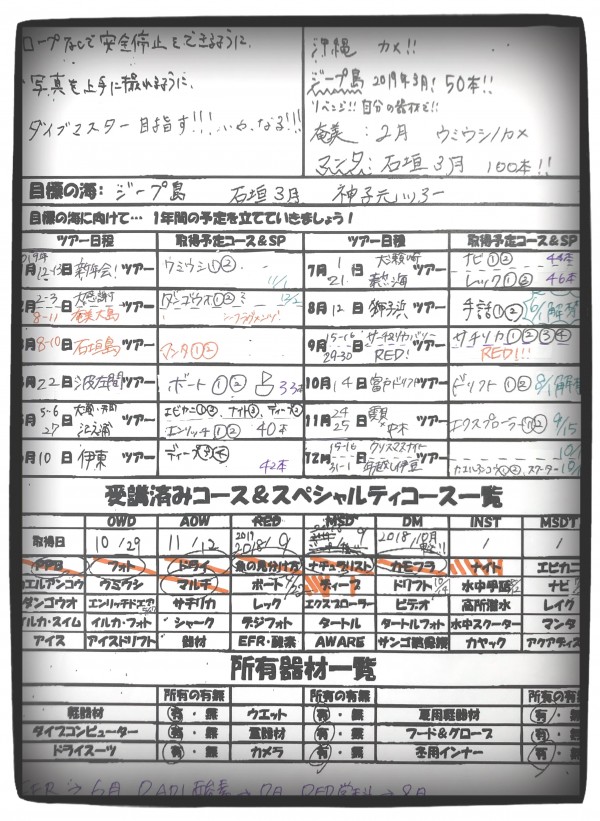 ロープなしで安全停止をできるように.
沖縄 カメ!!
写真を上手に撮れるように.
ジープ島 2019年3月! 50本!!
リベンジ!! 自分の器材で!!
ダイブマスター目指す!!!
奄美:2月 ウミウシ/カメ
マンタ:石垣3月 100本!!
目標の海:ジープ島 石垣3月 神子元ハンマー
目標の海に向けて… 1年間の予定を立てていきましょう!
ツアー日程 取得予定コース&SP ツアー日程 取得予定コース&SP
月12-13日 新年会! ツアー ウミウシ①②
7月1 21日 大瀬崎 熱海 ツアー ナビ①② 44本 レック①② 46本
2-3 8-11 大感謝 奄美大島 ツアー ダンゴウオ①②
8月12日 獅子浜 ツアー 手話①②
8-10日 石垣島 ツアー マンタ①②
9月15-16 29-30日 RED! ツアー サチリカ①②③④ RED!!!
月22日 波左間 ツアー ボート①②
10月14日 ツアー ドリフト①②
月5-6 27日 ツアー エンリッチ①② 40本
11月24 25日 ツアー エクスプローラー①② 9/15
6月10日 伊東 ツアー ディープ 42本
12月15-16 31-1日 クリスマスナイト 年越し伊豆 ツアー
受講済みコース&スペシャルティコース一覧
OWD AOW RED MSD DM INST MSDT
取得日 10/29 11/12 2018/ 9 2018/10月 / /
PPB フォト ドライ 魚の見分け方 ナチュラリスト カモフラ ナイト エビカニ
カエルアンコウ ウミウシ マルチ ボート ディープ ドリフト 水中手話 ナビ
ダンゴウオ エンリッチドエア サチリカ レック エクスプローラー ビデオ 高所潜水 レイク
イルカ・スイム イルカ・フォト シャーク デジフォト タートル タートルフォト 水中スクーター マンタ
アイス アイスドリフト 器材 EFR・酸素 AWARE サンゴ礁保護 カヤック アクアティス
所有器材一覧
所有の有無 所有の有無 所有の有無
軽器材 有・無 ウエット 有・無 専用軽器材 有・無
ダイブコンピューター 有・無 重器材 有・無 フード&グローブ 有・無
ドライスーツ 有・無 カメラ 有・無 冬用インナー 有・無
EFR→6月 PADI酸素→7月 RED学科→8月